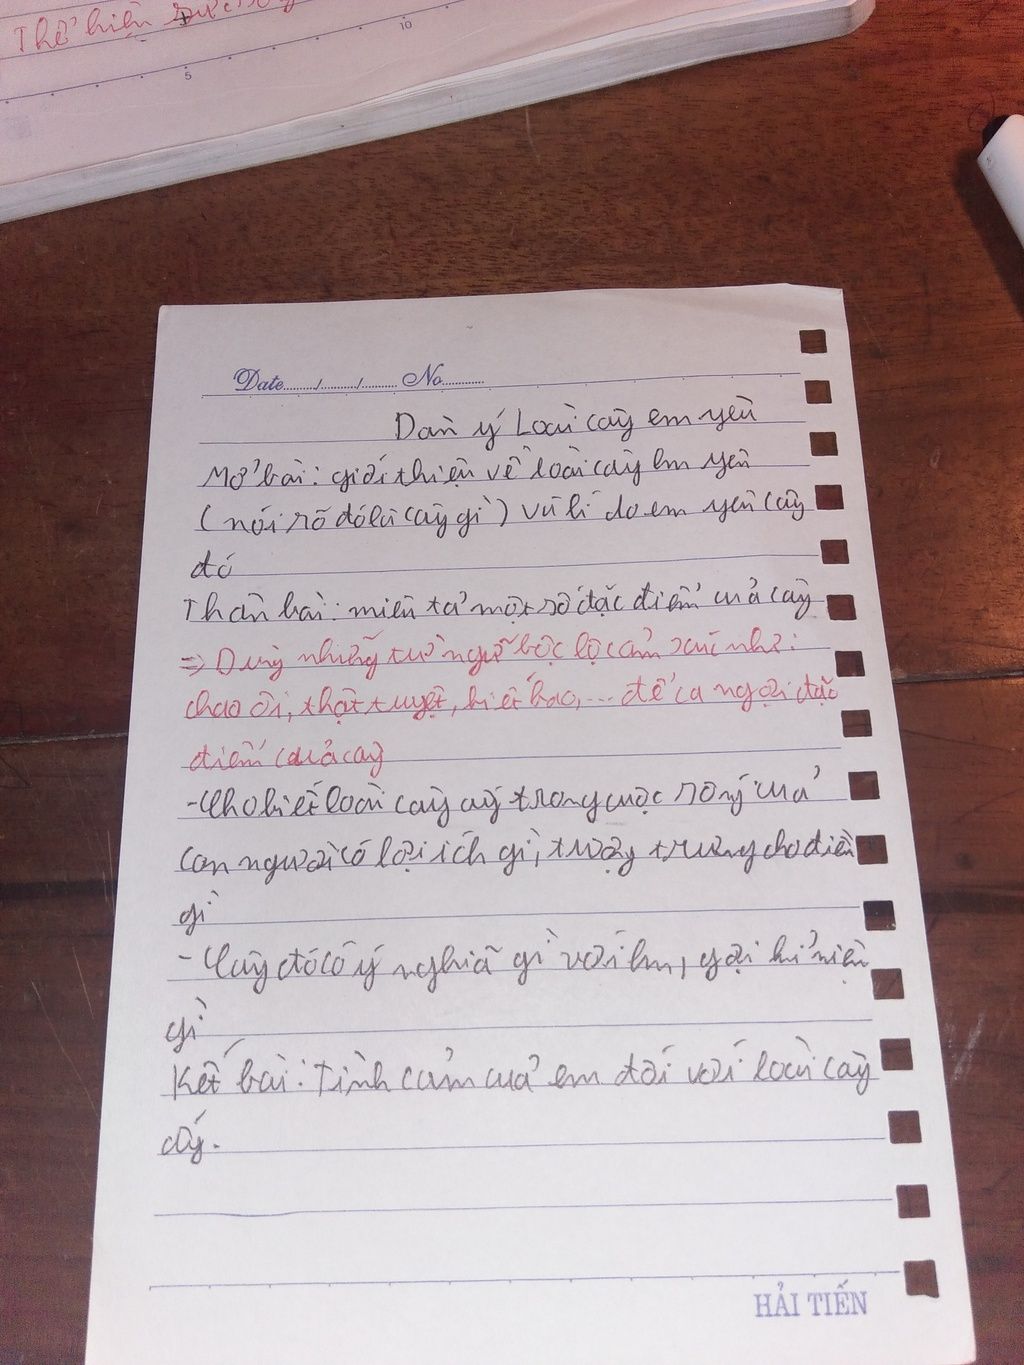 Thể hiện
5
10
Date......../........./......... No...........
Dàn ý Loài cây em yêu
Mở bài: giới thiệu về loài cây em yêu
(nói rõ đó là cây gì) và lí do em yêu cây
đó
Thân bài: miêu tả một số đặc điểm của cây
=> Dùng những từ ngữ bộc lộ cảm xúc như:
chao ôi, thật tuyệt, biết bao,... để ca ngợi đặc
điểm của cây
- Cho biết loài cây ấy trong cuộc sống của
con người có lợi ích gì, tượng trưng cho điều
gì
- Cây đó có ý nghĩa gì với em, gợi kỉ niệm
gì
Kết bài: Tình cảm của em đối với loài cây
ấy.
HẢI TIẾN